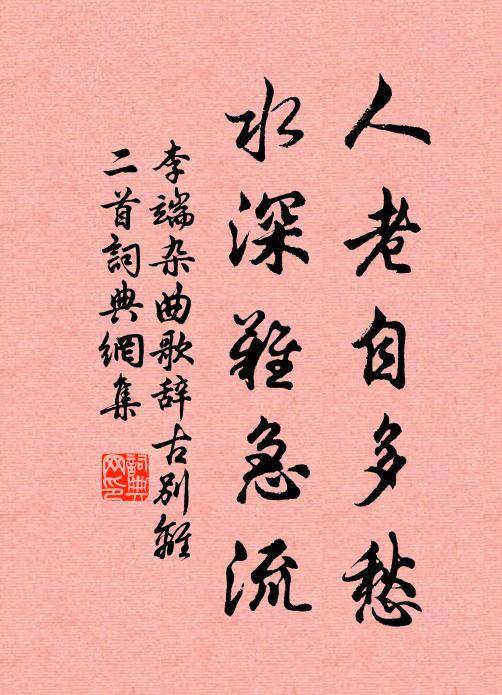 人老自多愁
水深难急流
李端杂曲歌辞古别离
二首詞典網集
詞典網印